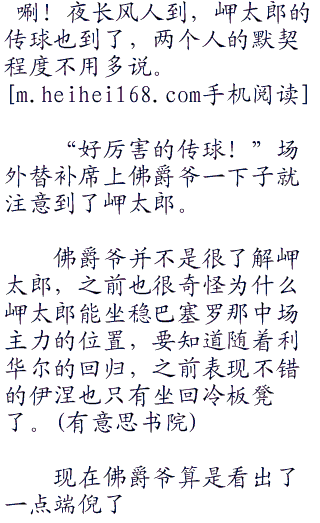 唰！夜长风人到，岬太郎的
传球也到了，两个人的默契
程度不用多说。
[m.heihei168.com手机阅读]
“好厉害的传球！”场
外替补席上佛爵爷一下子就
注意到了岬太郎。
佛爵爷并不是很了解岬
太郎，之前也很奇怪为什么
岬太郎能坐稳巴塞罗那中场
主力的位置，要知道随着利
华尔的回归，之前表现不错
的伊涅也只有坐回冷板凳
了。(有意思书院)
现在佛爵爷算是看出了
一点端倪了